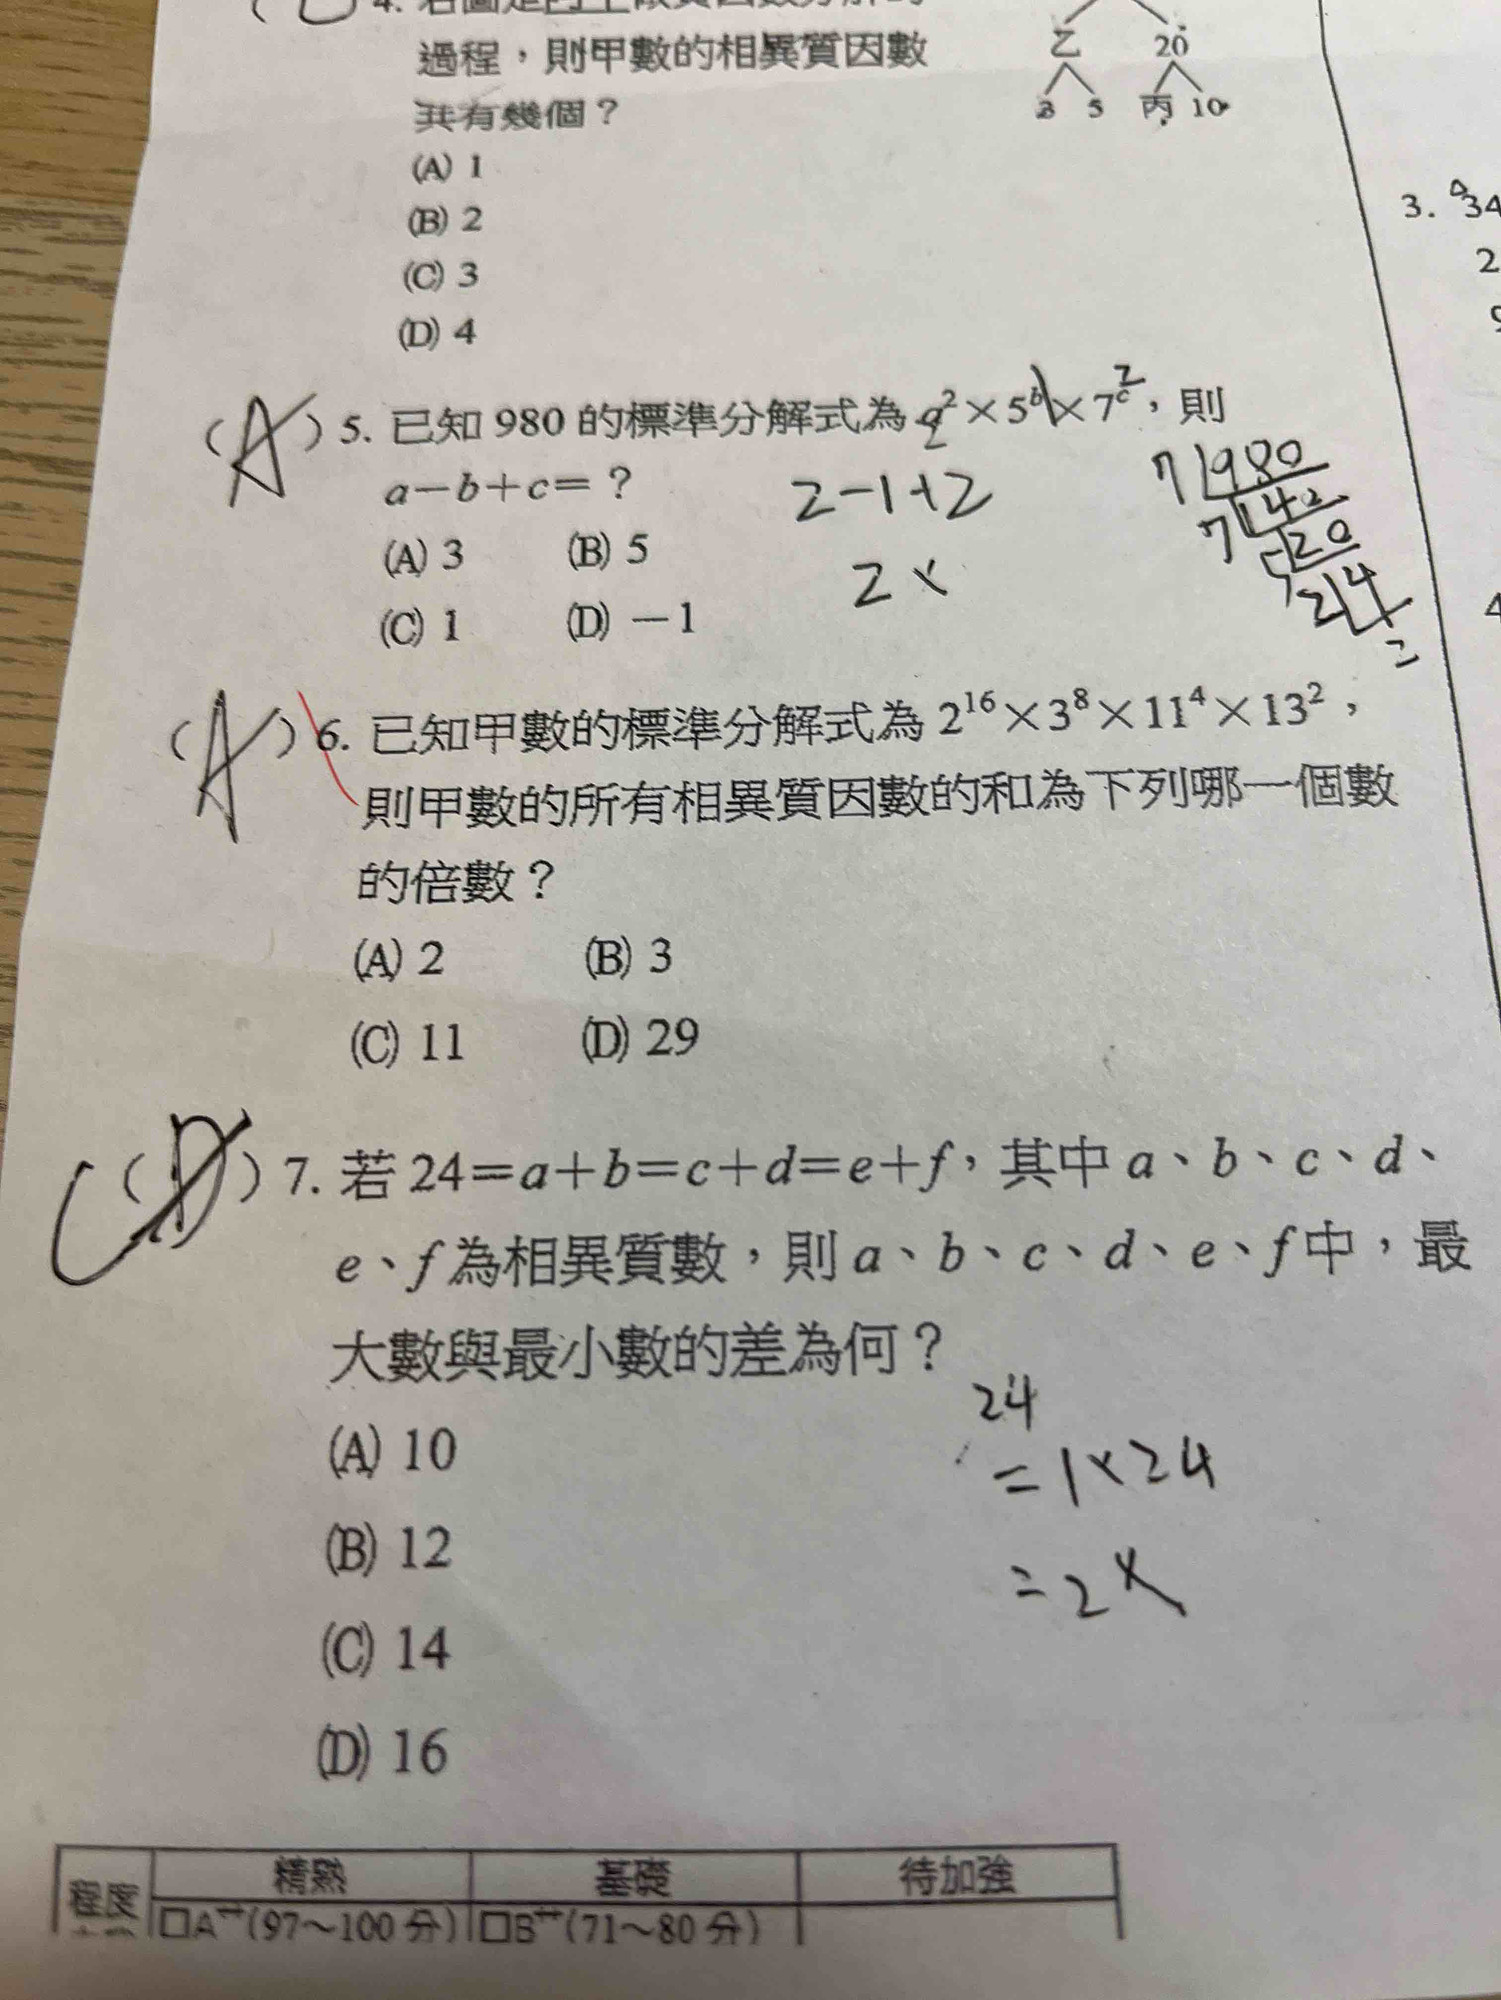 過程，則甲數的相異質因數
共有幾個？
乙 20
3 5 丙 10
(A) 1
(B) 2
(C) 3
(D) 4
3. 34
2
(A) 5. 已知 980 的標準分解式為 a² × 5ᵇ × 7ᶜ，則
2 1 2
a－b＋c＝？
2-1+2
2×
7 980
7 140
5 20
2 4
2
(A) 3 (B) 5
(C) 1 (D) －1
(A) 6. 已知甲數的標準分解式為 2¹⁶×3⁸×11⁴×13²，
則甲數的所有相異質因數的和為下列哪一個數
的倍數？
(A) 2 (B) 3
(C) 11 (D) 29
C (D) 7. 若 24＝a＋b＝c＋d＝e＋f，其中 a、b、c、d、
e、f 為相異質數，則 a、b、c、d、e、f 中，最
大數與最小數的差為何？
24
= 1×24
= 2×
(A) 10
(B) 12
(C) 14
(D) 16
程度 精熟 基礎 待加強
□A⁺⁺(97～100 分) □B⁺⁺(71～80 分)